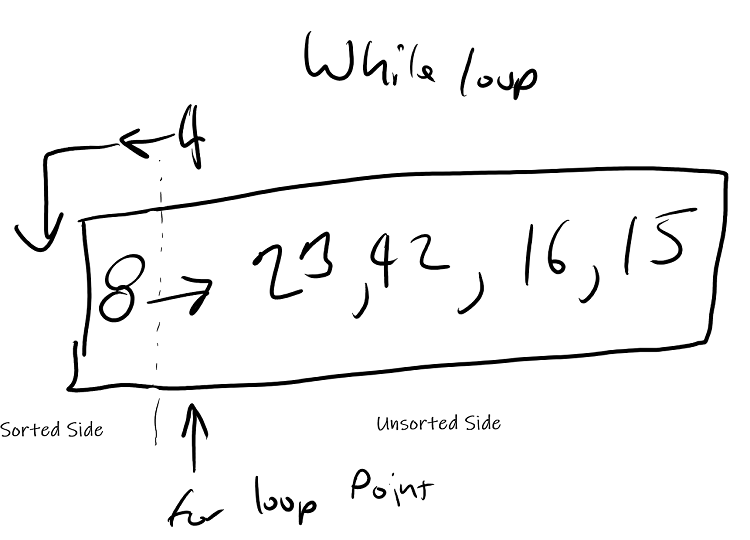 While loop
4
8 → 23, 42, 16, 15
Sorted Side
Unsorted Side
for loop Point